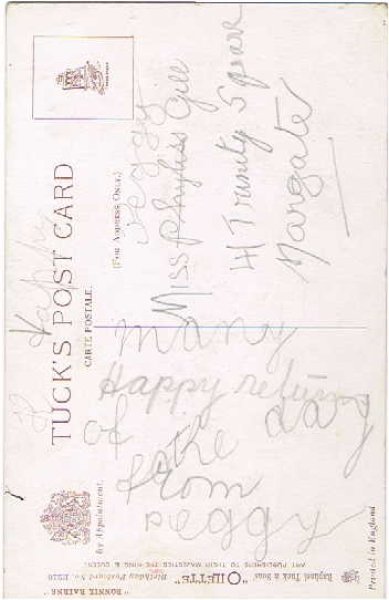 TUCK'S POST CARD
CARTE POSTALE.
(FOR ADDRESS ONLY.)
By Appointment.
Happy
Peggy
many
Happy returns
of the day
from
Peggy
Miss Phyliss Gill
41 Trinity Square
Margate
"BONNIE BAIRNS"
"OILETTE"
Birthday Postcard No.
Raphael Tuck & Sons'
ART PUBLISHERS TO THEIR MAJESTIES THE KING & QUEEN.
Printed in England